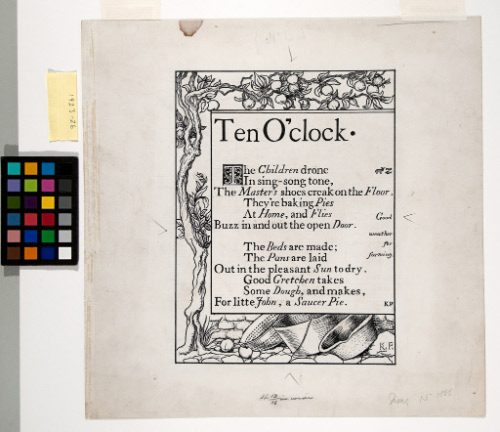 Ten O'clock.
The Children drone
In sing-song tone,
The Master's shoes creak on the Floor.
They're baking Pies
At Home, and Flies
Buzz in and out the open Door.
Good
weather
for
The Beds are made;
The Pans are laid
Out in the pleasant Sun to dry.
Good Gretchen takes
Some Dough, and makes,
For litte John, a Saucer Pie.
KP